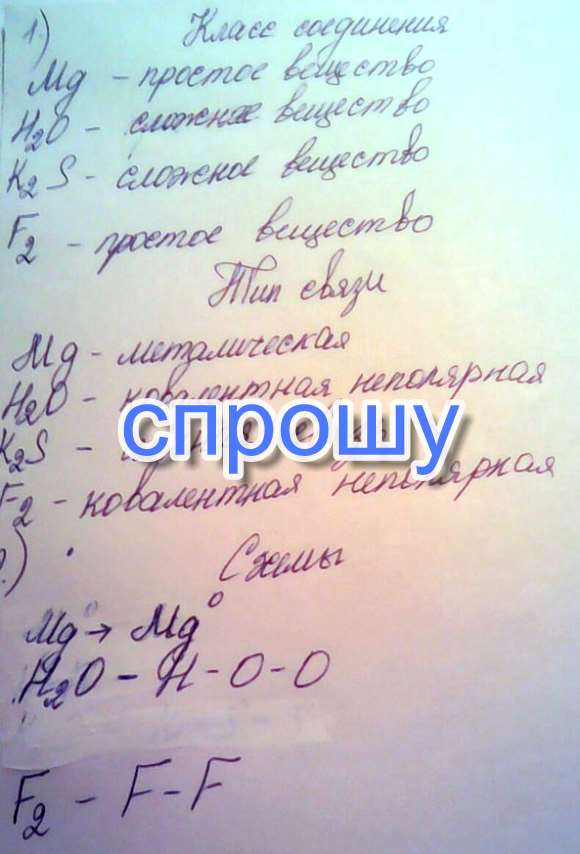 1.) Класс соединения
Mg - простое вещество
H2O - сложное вещество
K2S - сложное вещество
F2 - простое вещество
Тип связи
Mg - металическая
H2O - ковалентная неполярная
K2S -
спрошу
F2 - ковалентная неполярная
.) Схемы
Mg⁰ → Mg⁰
H2O - H-O-O
F2 - F-F